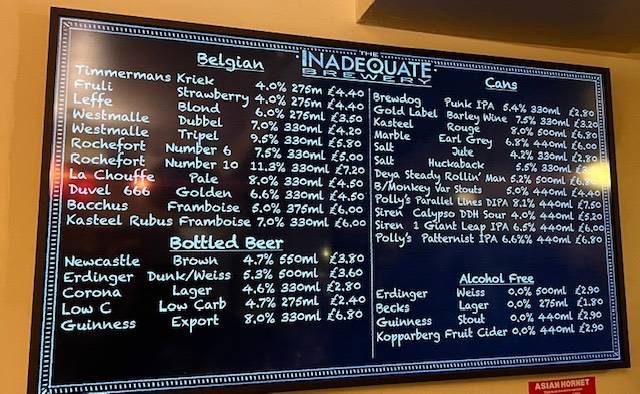 THE
INADEQUATE
BREWERY
Belgian
Timmermans Kriek 4.0% 275m £4.40
Fruli Strawberry 4.0% 275m £4.40
Leffe Blond 6.0% 275ml £3.50
Westmalle Dubbel 7.0% 330ml £4.20
Westmalle Tripel 9.5% 330ml £5.80
Rochefort Number 6 7.5% 330ml £5.00
Rochefort Number 10 11.3% 330ml £7.20
La Chouffe Pale 8.0% 330ml £4.50
Duvel 666 Golden 6.6% 330ml £4.50
Bacchus Framboise 5.0% 375ml £6.00
Kasteel Rubus Framboise 7.0% 330ml £6.00
Bottled Beer
Newcastle Brown 4.7% 550ml £3.80
Erdinger Dunk/Weiss 5.3% 500ml £3.60
Corona Lager 4.6% 330ml £2.80
Low C Low Carb 4.7% 275ml £2.40
Guinness Export 8.0% 330ml £6.80
Cans
Brewdog Punk IPA 5.4% 330ml £2.80
Gold Label Barley Wine 7.5% 330ml £3.20
Kasteel Rouge 8.0% 500ml £6.80
Marble Earl Grey 6.8% 440ml £6.00
Salt Jute 4.2% 330ml
Salt Huckaback 5.5% 330ml
Deya Steady Rollin' Man 5.2% 500ml
B/Monkey Var Stouts 5.0% 440ml £4.40
Polly's Parallel Lines DIPA 8.1% 440ml £7.50
Siren Calypso DDH Sour 4.0% 440ml £5.20
Siren 1 Giant Leap IPA 6.5% 440ml £6.00
Polly's Patternist IPA 6.6%% 440ml £6.80
Alcohol Free
Erdinger Weiss 0.0% 500ml £2.90
Becks Lager 0.0% 275ml £1.80
Guinness Stout 0.0% 440ml £2.90
Kopparberg Fruit Cider 0.0% 440ml £2.90
ASIAN HORNET